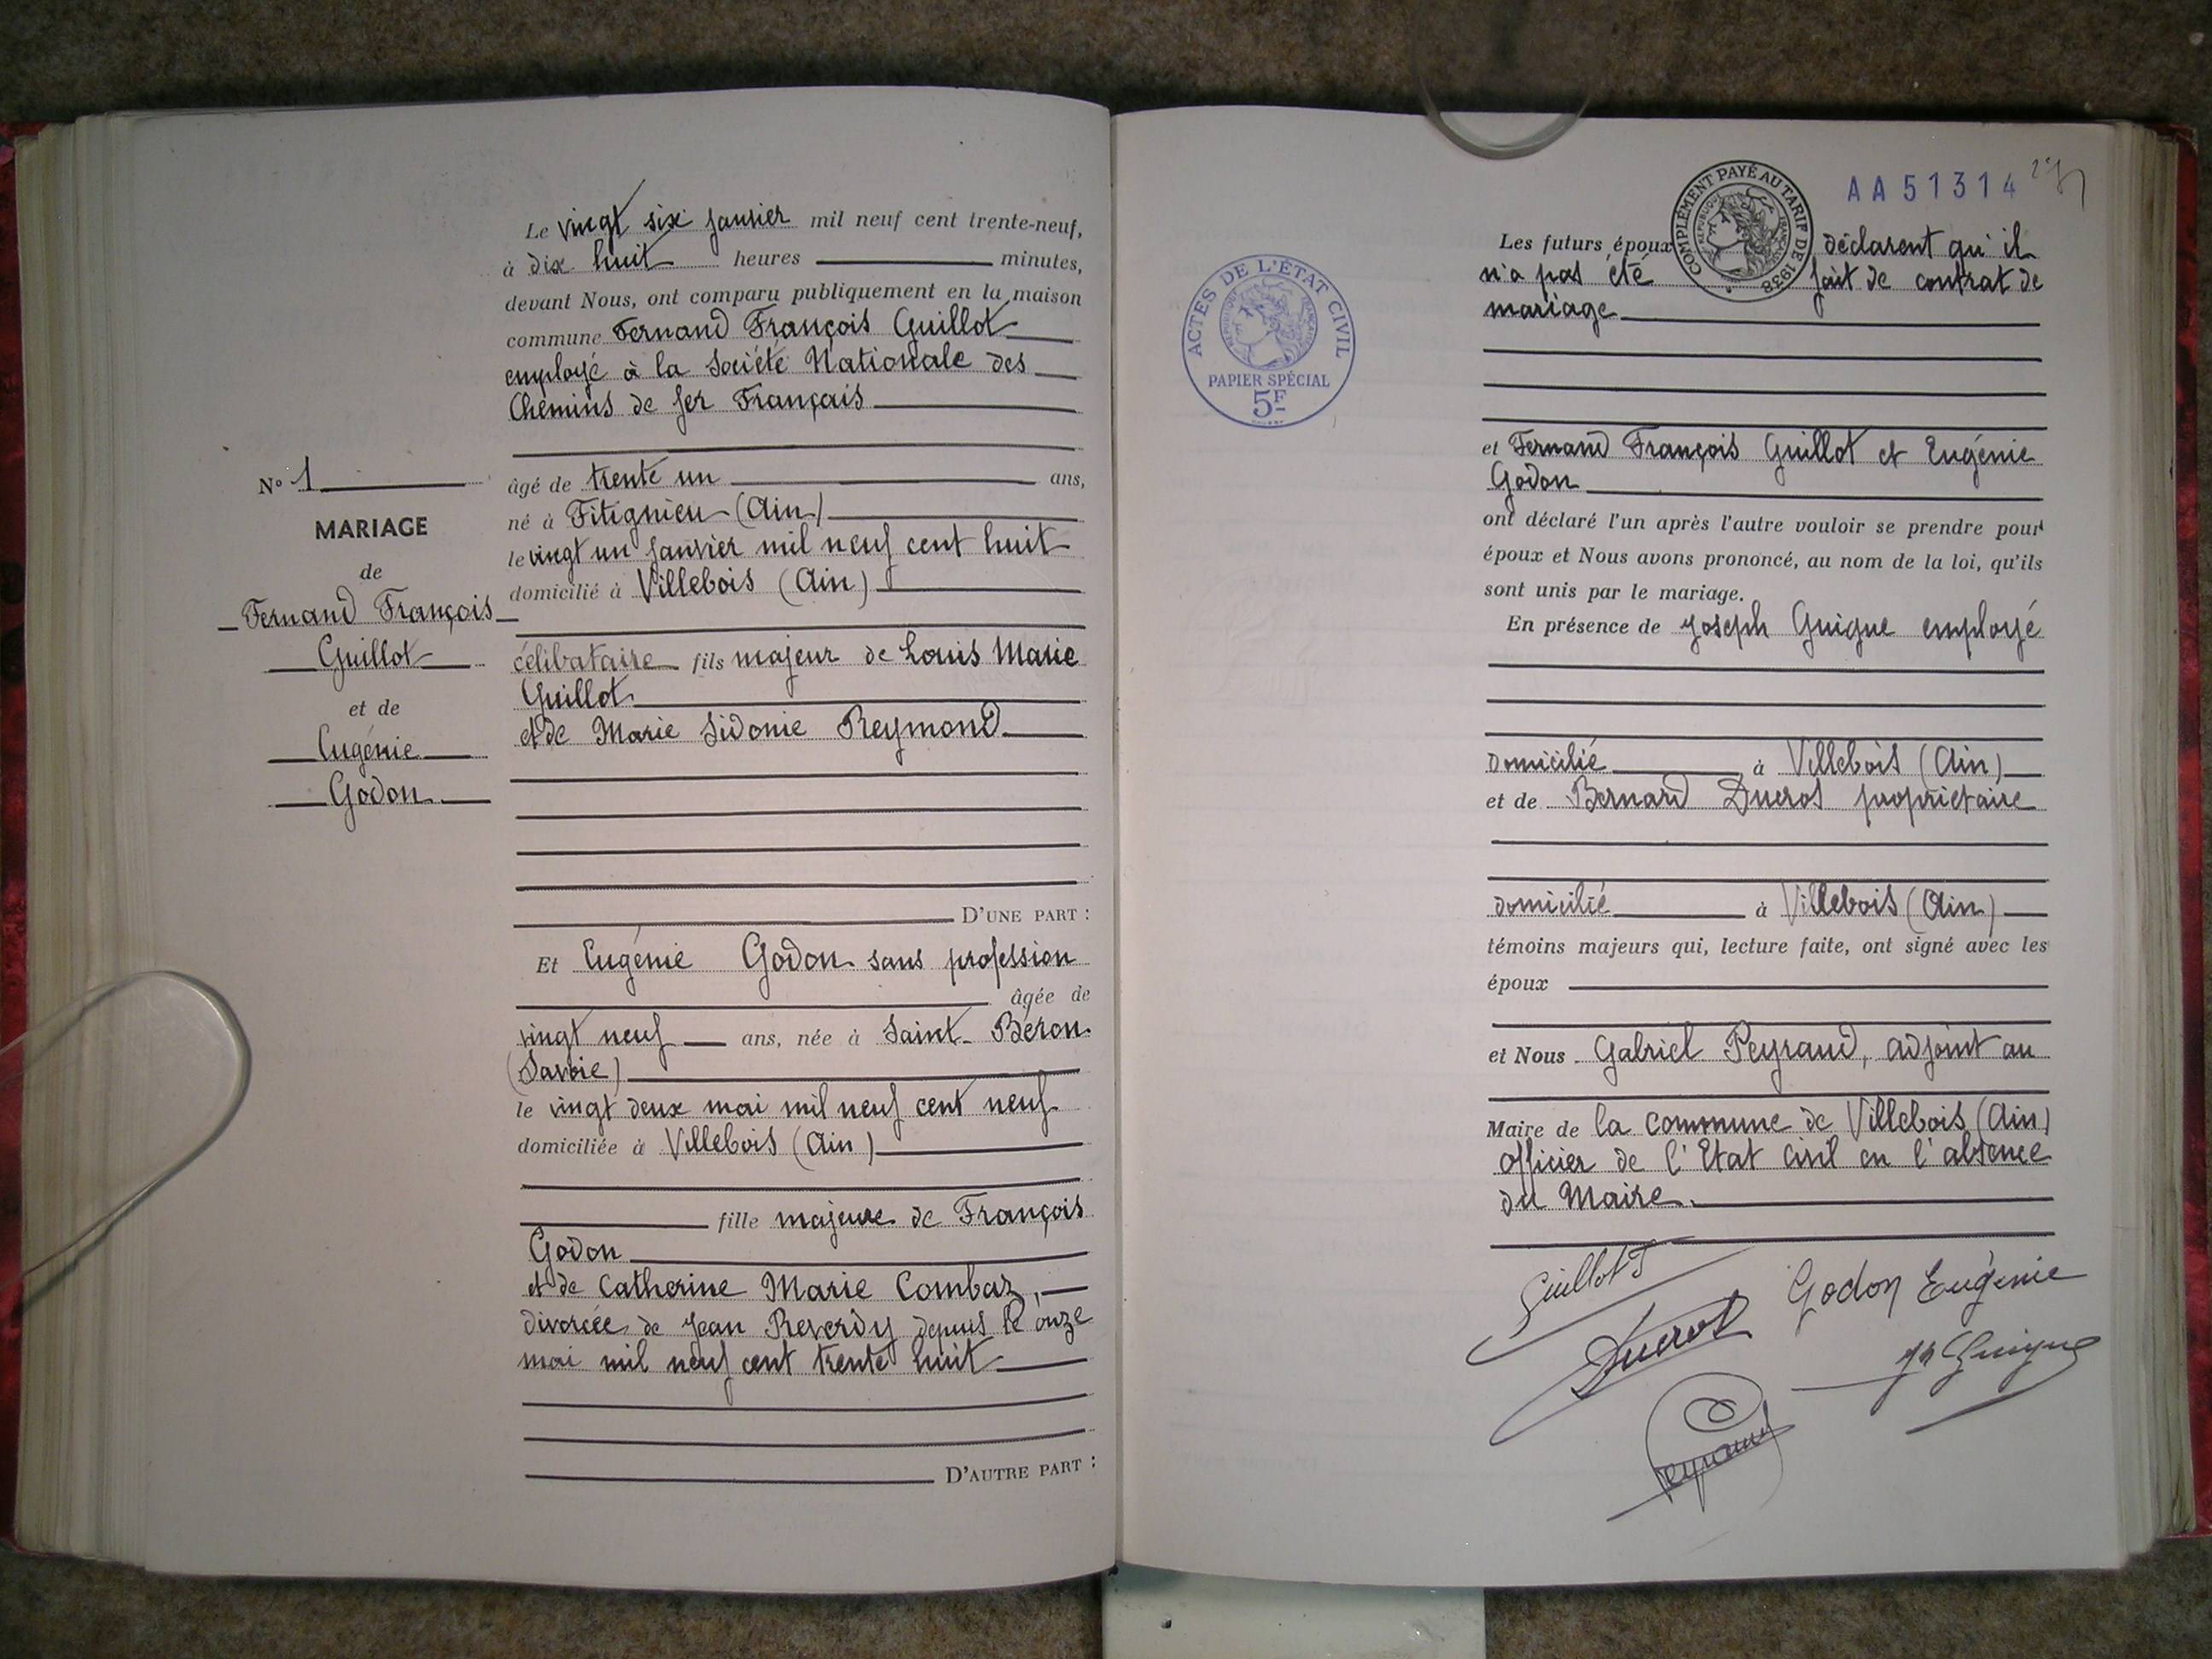 N° 1
MARIAGE
de
Fernand François
Guillot
et de
Eugénie
Godon
Le vingt six janvier mil neuf cent trente-neuf,
à dix huit heures minutes,
devant Nous, ont comparu publiquement en la maison
commune Fernand François Guillot
employé à la Société Nationale des
Chemins de fer Français
âgé de trente un ans,
né à Fitignieu (Ain)
le vingt un janvier mil neuf cent huit
domicilié à Villebois (Ain)
célibataire fils majeur de Louis Marie
Guillot
et de Marie Sidonie Reymond
D'UNE PART :
Et Eugénie Godon sans profession
âgée de
vingt neuf ans, née à Saint-Béron
(Savoie)
le vingt deux mai mil neuf cent neuf
domiciliée à Villebois (Ain)
fille majeure de François
Godon
et de Catherine Marie Combaz,
divorcée de Jean Reverdy depuis le onze
mai mil neuf cent trente huit
D'AUTRE PART :
ACTES DE L'ÉTAT CIVIL
PAPIER SPÉCIAL
5F
COMPLÉMENT PAYÉ AU TARIF DE 1938
AA51314
Les futurs époux déclarent qu'il
n'a pas été fait de contrat de
mariage
et Fernand François Guillot et Eugénie
Godon
ont déclaré l'un après l'autre vouloir se prendre pour
époux et Nous avons prononcé, au nom de la loi, qu'ils
sont unis par le mariage.
En présence de Joseph Guigue employé
domicilié à Villebois (Ain)
et de Bernard Ducrot propriétaire
domicilié à Villebois (Ain)
témoins majeurs qui, lecture faite, ont signé avec les
époux
et Nous Gabriel Peyraud, adjoint au
Maire de la commune de Villebois (Ain)
officier de l'Etat civil en l'absence
du Maire.
Guillot F
Godon Eugénie
Ducrot
Guigue
Peyraud